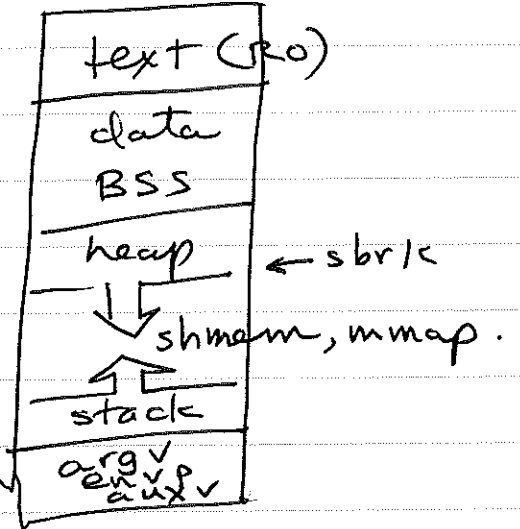 text (RO)
data
BSS
heap
← sbrk
shmem, mmap.
stack
argv
envp
auxv